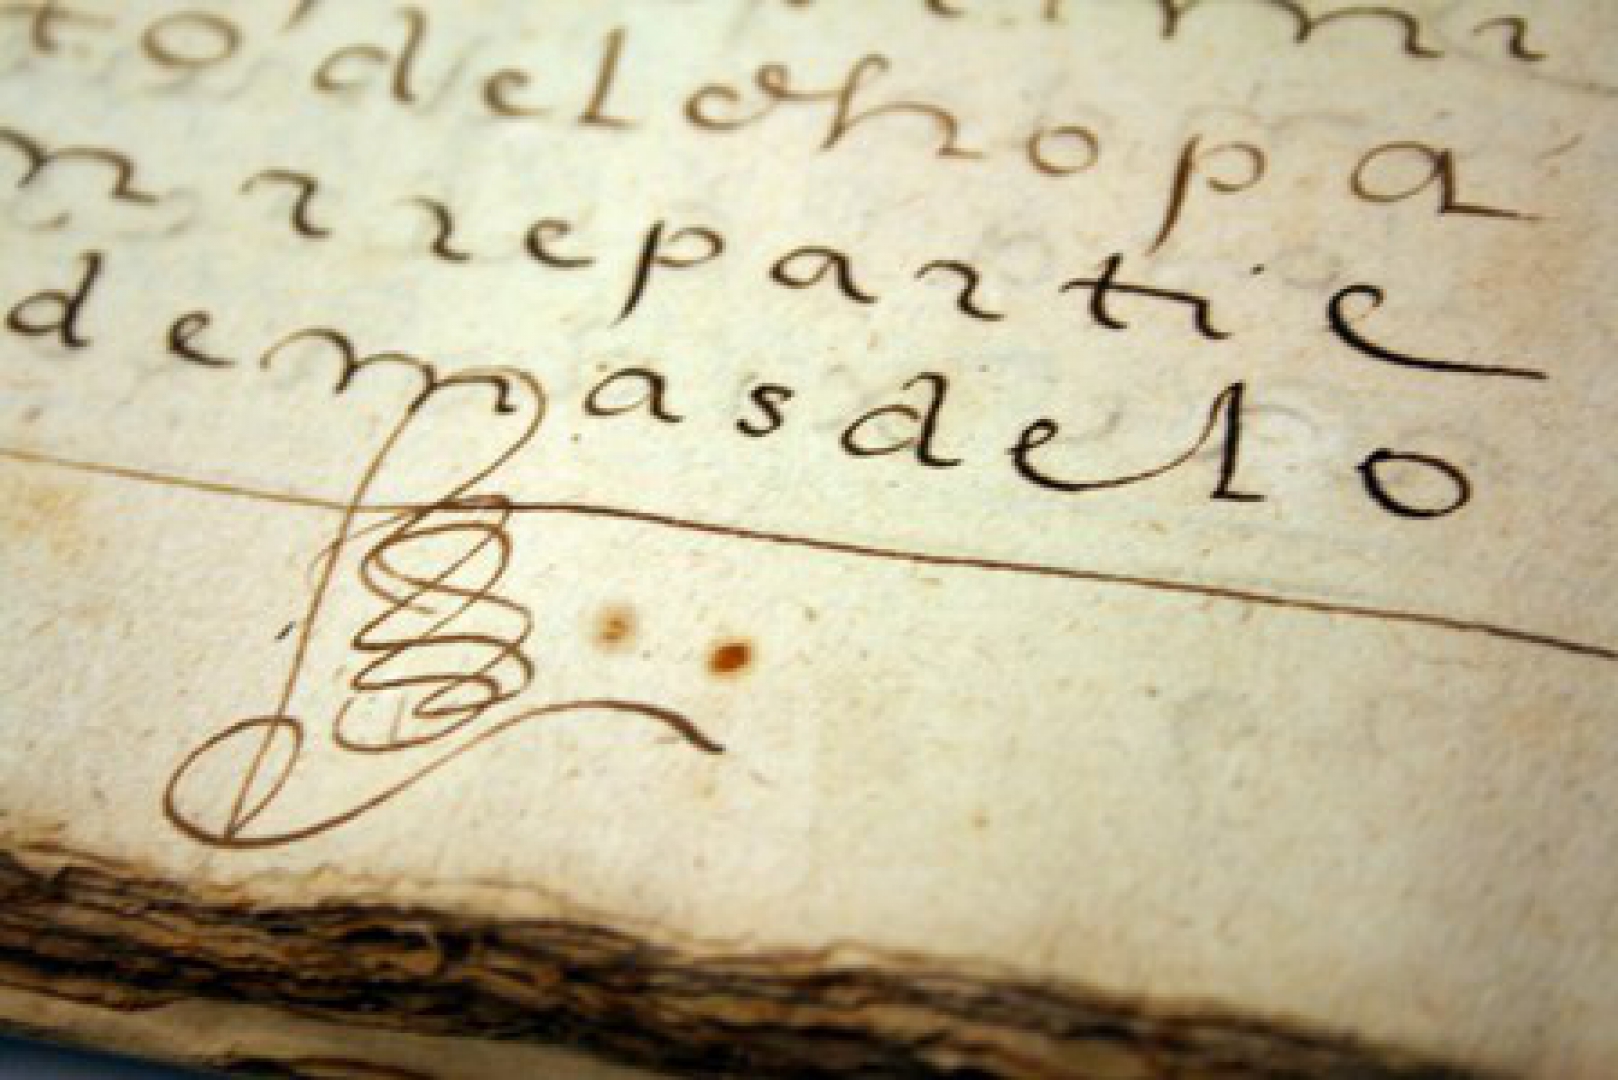 to del dho pa
repartie
demas de lo